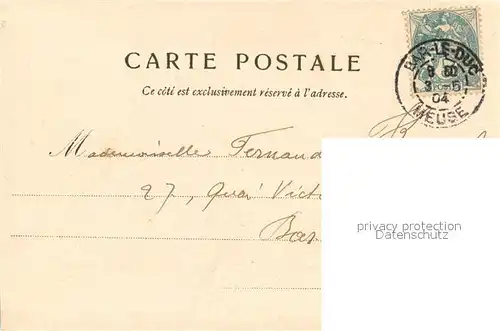 BAR-LE-DUC
3-6
04
MEUSE
CARTE POSTALE
Ce côté est exclusivement réservé à l'adresse.
Mademoiselle Fernand
27, Quai Vict
Bar
privacy protection
Datenschutz